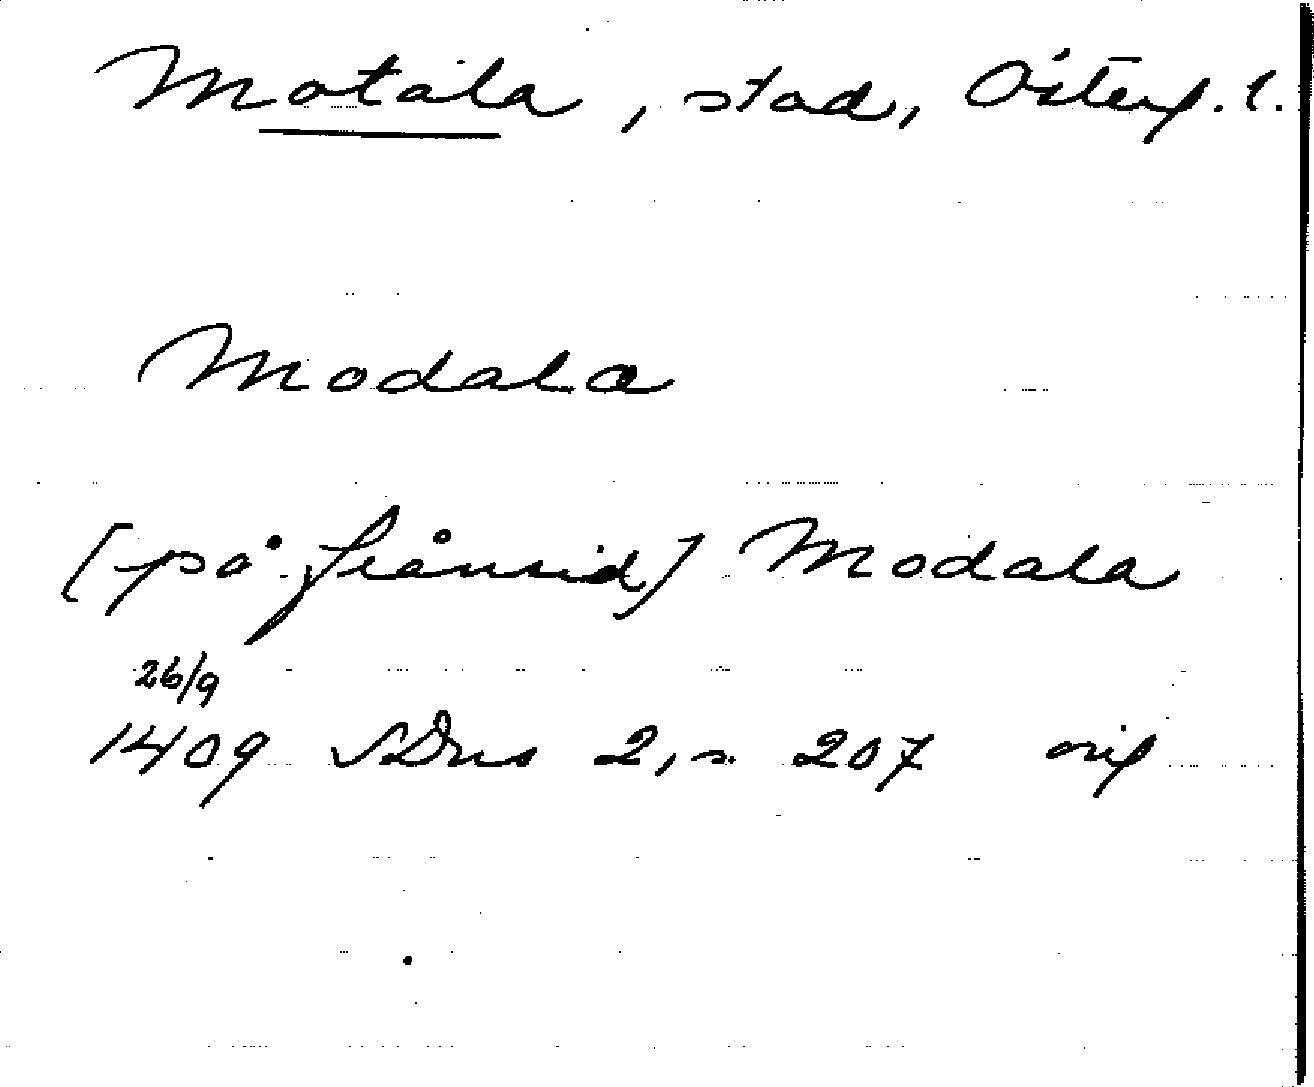 Motala, stad, Österg. l.
Modala
[på frånsid] Modala
26/9
1409 SDns 2, s. 207 orig